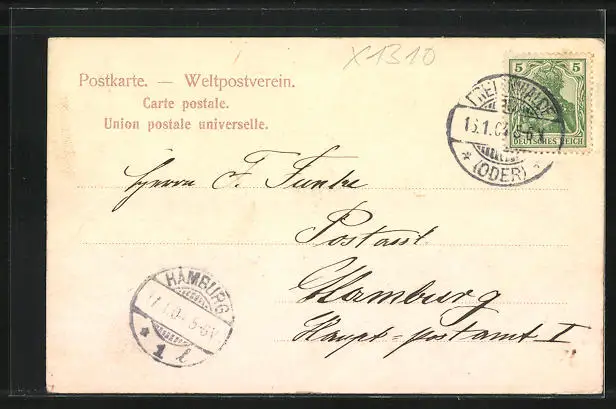 X1310
Postkarte. — Weltpostverein.
Carte postale.
Union postale universelle.
5 5
DEUTSCHES REICH
16.1.04 5-6 N
* (ODER) *
Herrn F. Funke
Postamt
Hamburg
Haupt=postamt I
HAMBURG
17.1.04 5-6V
* 1 l